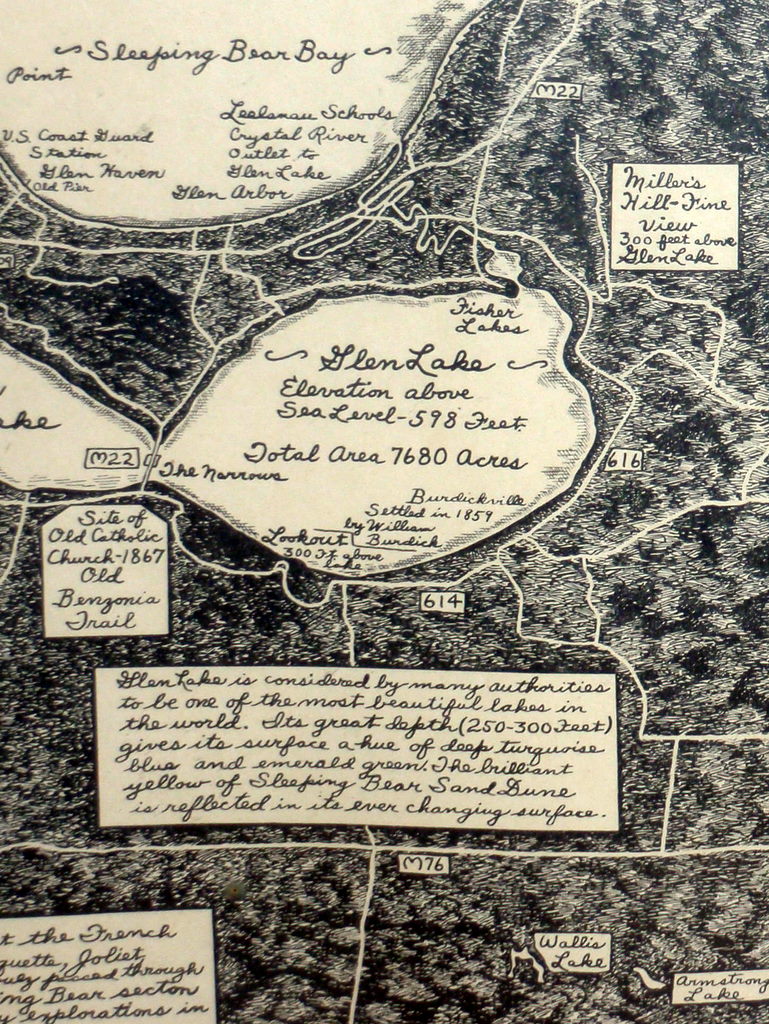 Sleeping Bear Bay
Point
M22
Leelanau Schools
Crystal River
Outlet to
Glen Lake
U.S. Coast Guard
Station
Glen Haven
Old Pier
Glen Arbor
Miller's
Hill-Fine
View
300 feet above
Glen Lake
09
Fisher
Lakes
Glen Lake
Elevation above
Sea Level-598 Feet.
Total Area 7680 Acres
ake
M22
The Narrows
616
Burdickville
Settled in 1859
by William
Burdick
Lookout
300 Ft above
lake
Site of
Old Catholic
Church-1867
Old
Benzonia
Trail
614
Glen Lake is considered by many authorities
to be one of the most beautiful lakes in
the world. Its great depth (250-300 Feet)
gives its surface a hue of deep turquoise
blue and emerald green. The brilliant
yellow of Sleeping Bear Sand Dune
is reflected in its ever changing surface.
M76
t the French
quette, Joliet
placed through
ng Bear secton
y explorations in
Wallis
Lake
Armstrong
Lake